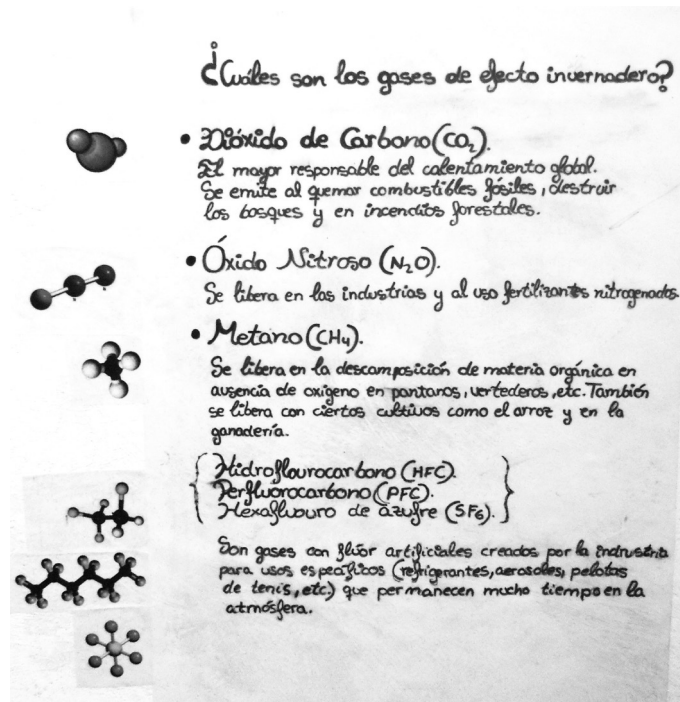 ¿Cuáles son los gases de efecto invernadero?
• Dióxido de Carbono (CO₂).
El mayor responsable del calentamiento global.
Se emite al quemar combustibles fósiles, destruir
los bosques y en incendios forestales.
• Óxido Nitroso (N₂O).
Se libera en las industrias y al uso fertilizantes nitrogenados.
• Metano (CH₄).
Se libera en la descomposición de materia orgánica en
ausencia de oxigeno en pantanos, vertederos, etc. También
se libera con ciertos cultivos como el arroz y en la
ganadería.
Hidroflourocarbono (HFC).
Perfluorocarbono (PFC).
Hexafluouro de azufre (SF₆).
Son gases con flúor artificiales creados por la indrustria
para usos específicos (refrigerantes, aerosoles, pelotas
de tenis, etc.) que permanecen mucho tiempo en la
atmósfera.